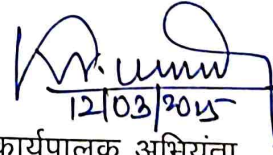 12/03/2015
कार्यपालक अभियंता